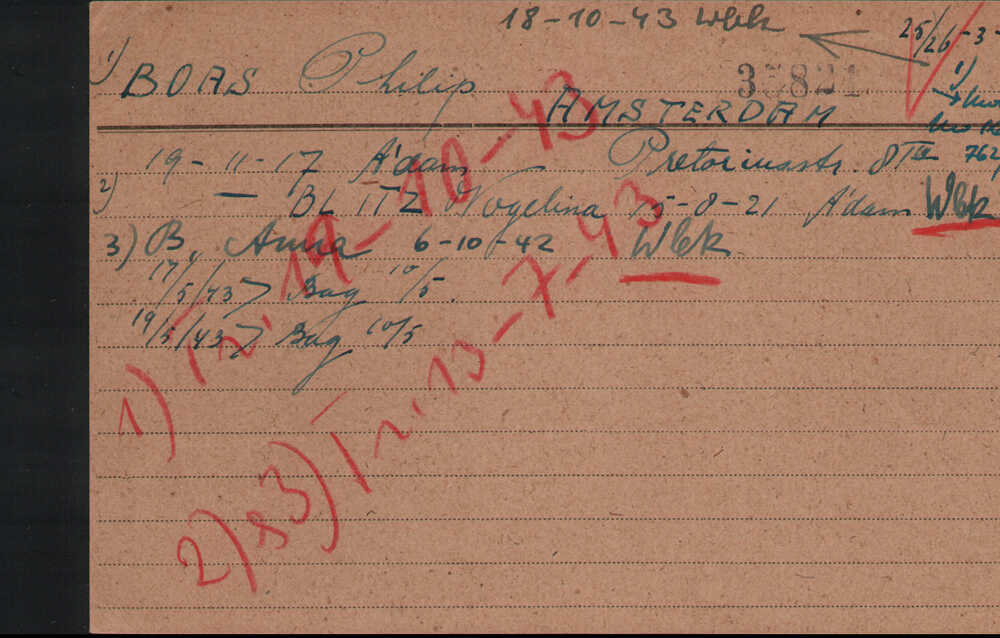 18-10-43 Wbk
25/26-3-
1) BOAS Philip 33821
AMSTERDAM
1)
19-11-17 A'dam Pretoriusstr. 8 III
2) — BLITZ Vogelina 15-8-21 A'dam Wbk
3) B, Anna 6-10-42 Wbk
17/5/43 > Bag 10/5.
19/5/43 > Bag 10/5
1) Tr. 19-10-43
2) & 3) Tr. 13-7-43